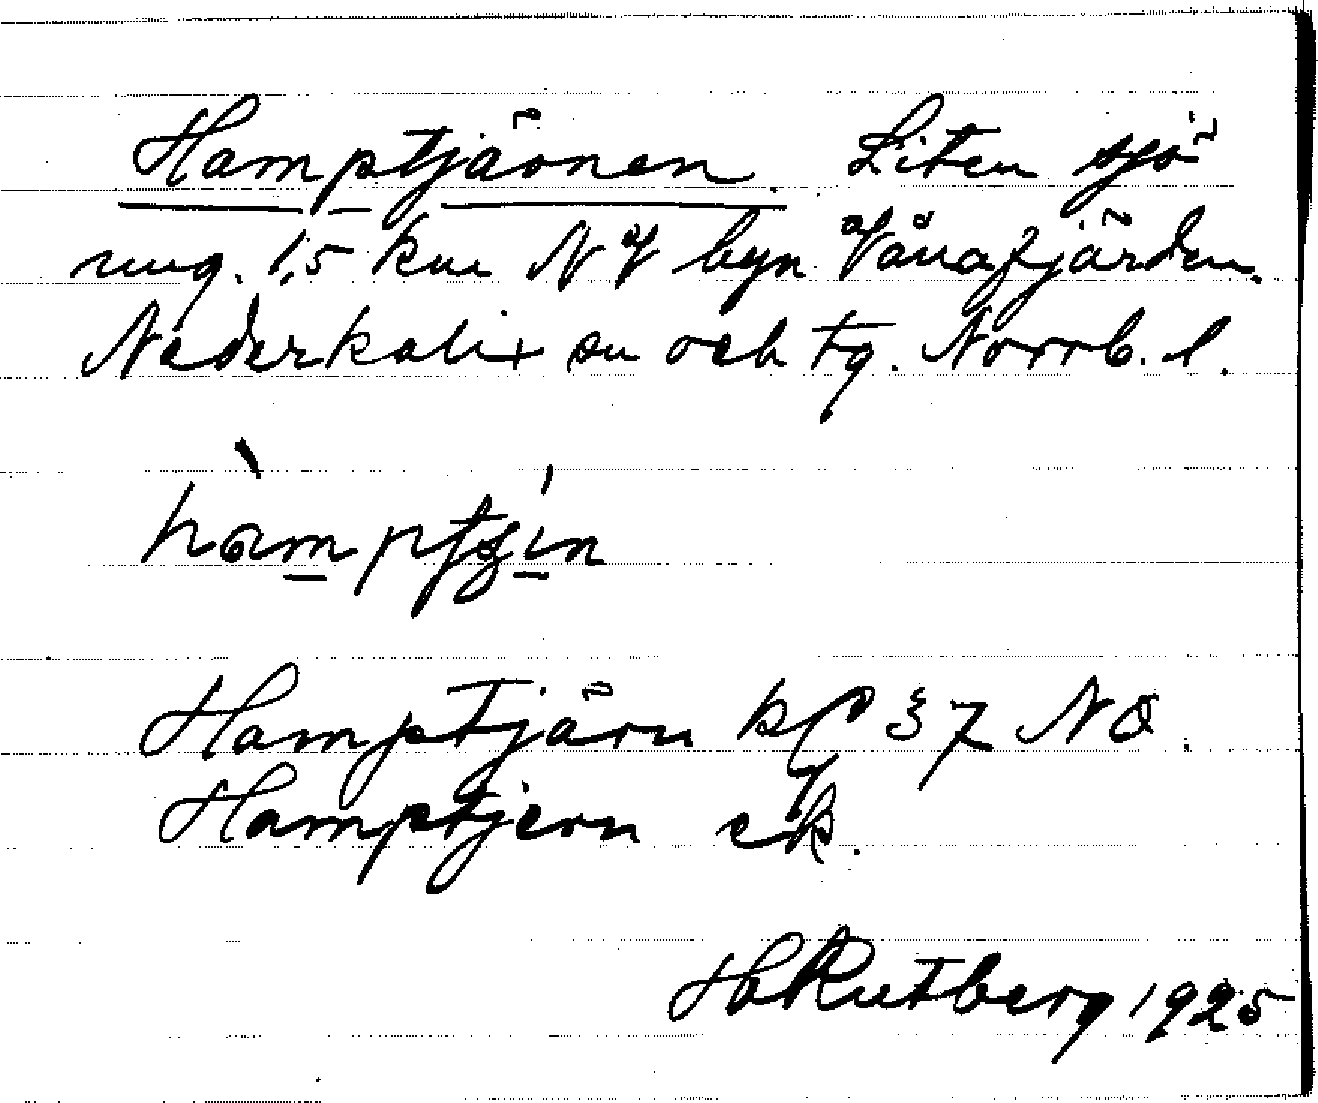 Hamptjärnen. Liten sjö
ung. 1,5 km NV byn Vånafjärden.
Nederkalix sn och tg. Norrb. l.
hàmptʂín
Hamptjärn kfl 37 NO.
Hamptjern ek.
H Rutberg 1925